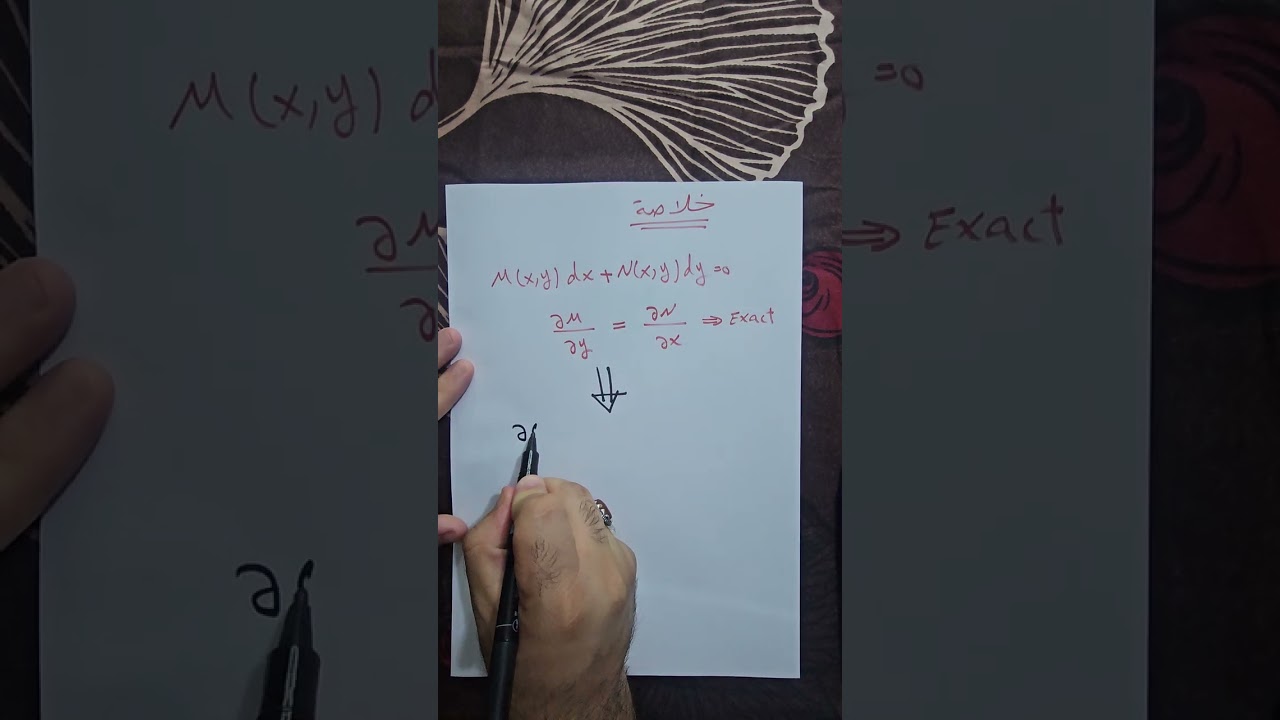 خلاصة
M(x,y) dx + N(x,y) dy = 0
∂M/∂y = ∂N/∂x ⇒ Exact
⇓
∂